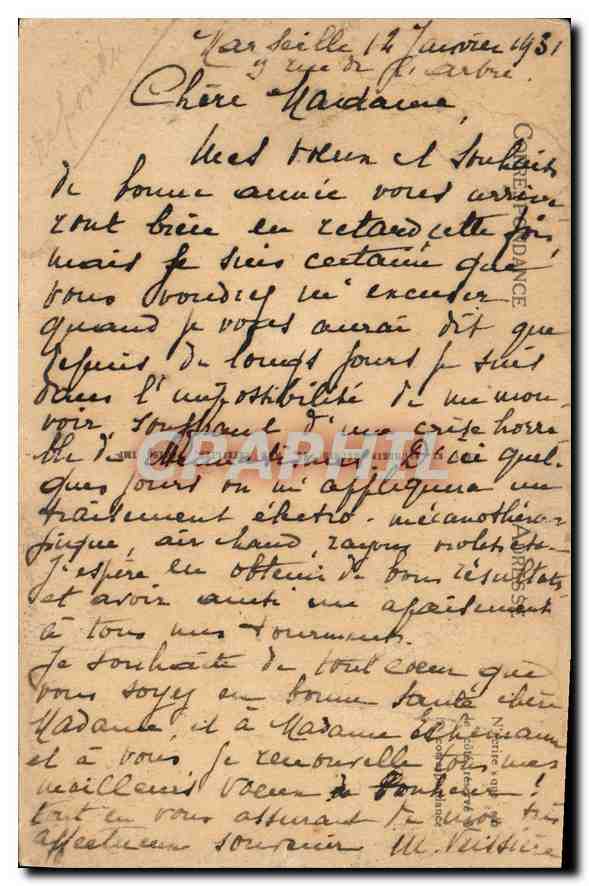 Marseille 12 Janvier 1931
9 rue de l'arbre
Chère Madame,
Mes voeux et souhaits
de bonne année vous arrive
ront bien en retard cette fois,
mais je suis certaine que
vous voudrez m'excuser
quand je vous aurai dit que
depuis de longs jours je suis
dans l'impossibilité de me mou-
voir souffrant d'une crise horri
ble de Rhumatismes. D'ici quel-
ques jours on m'appliquera un
traitement électro-mécanothéra-
pique, air chaud, rayons violets etc.
J'espère en obtenir de bons résultats
et avoir ainsi un apaisement
à tous mes tourments.
Je souhaite de tout coeur que
vous soyez en bonne santé chère
Madame, et à Madame
et à vous je renouvelle tous mes
meilleurs voeux de bonheur !
tout en vous assurant de mon très
affectueux souvenir M. Veissière
CORRESPONDANCE
ADRESSE
CPAPHIL